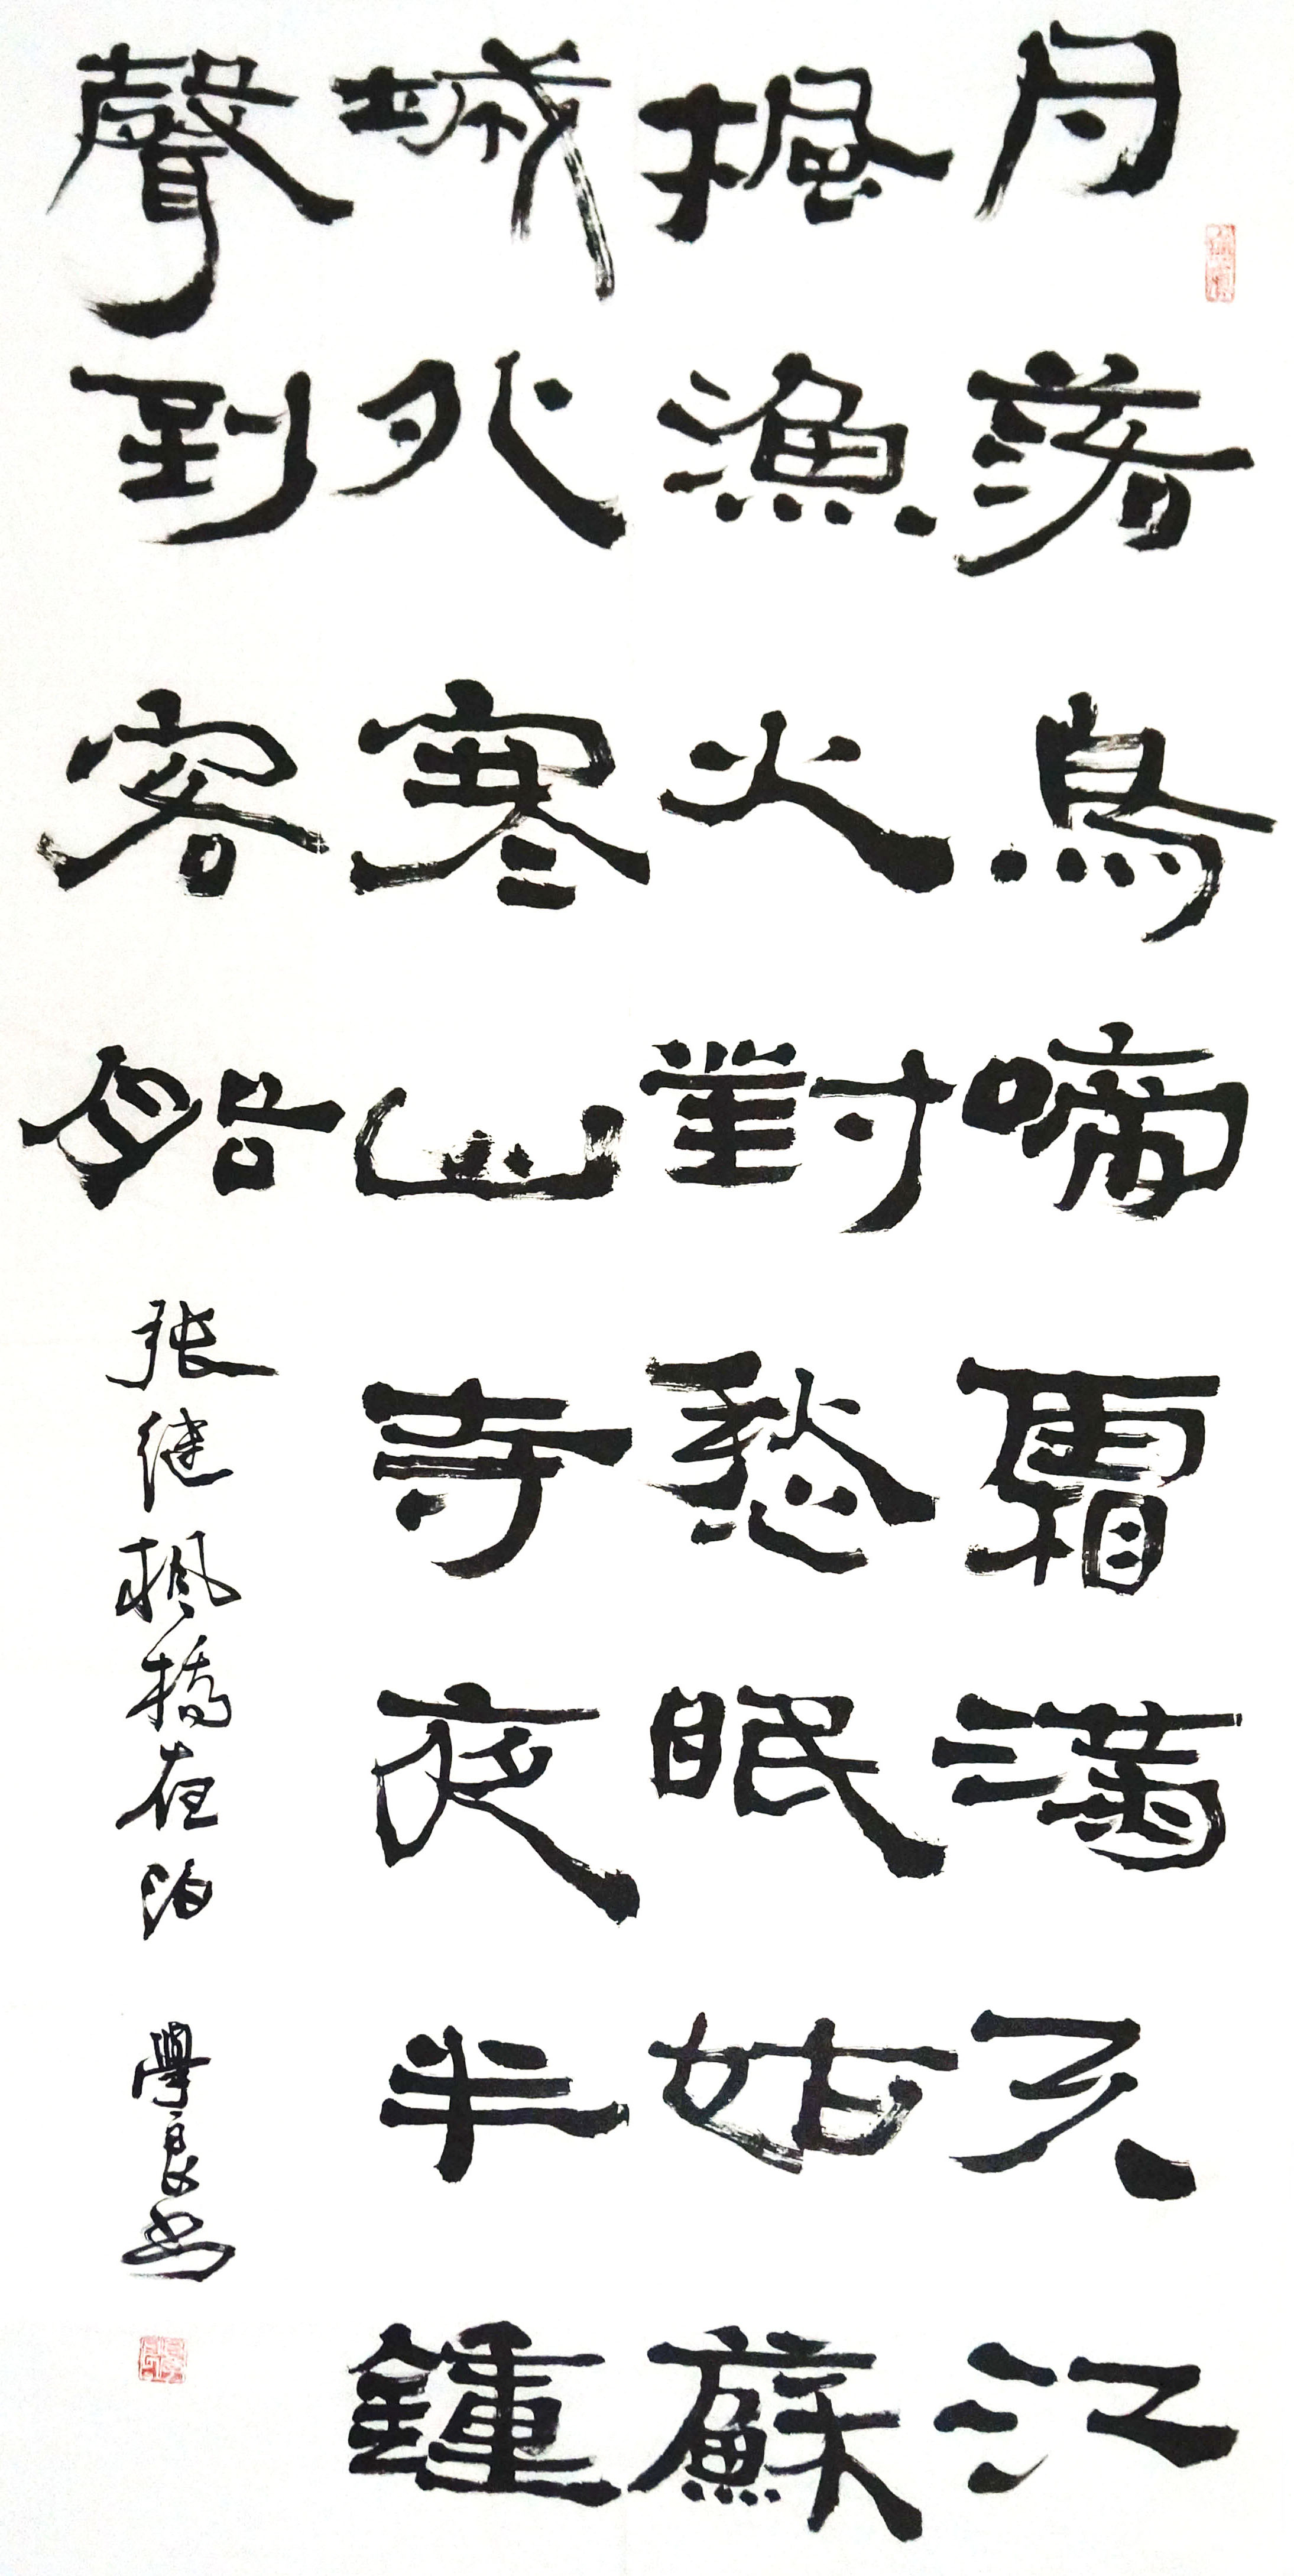 月落烏啼霜满天江
楓漁火對愁眠姑蘇
城外寒山寺夜半鍾
聲到客船张继枫橋夜泊學良书